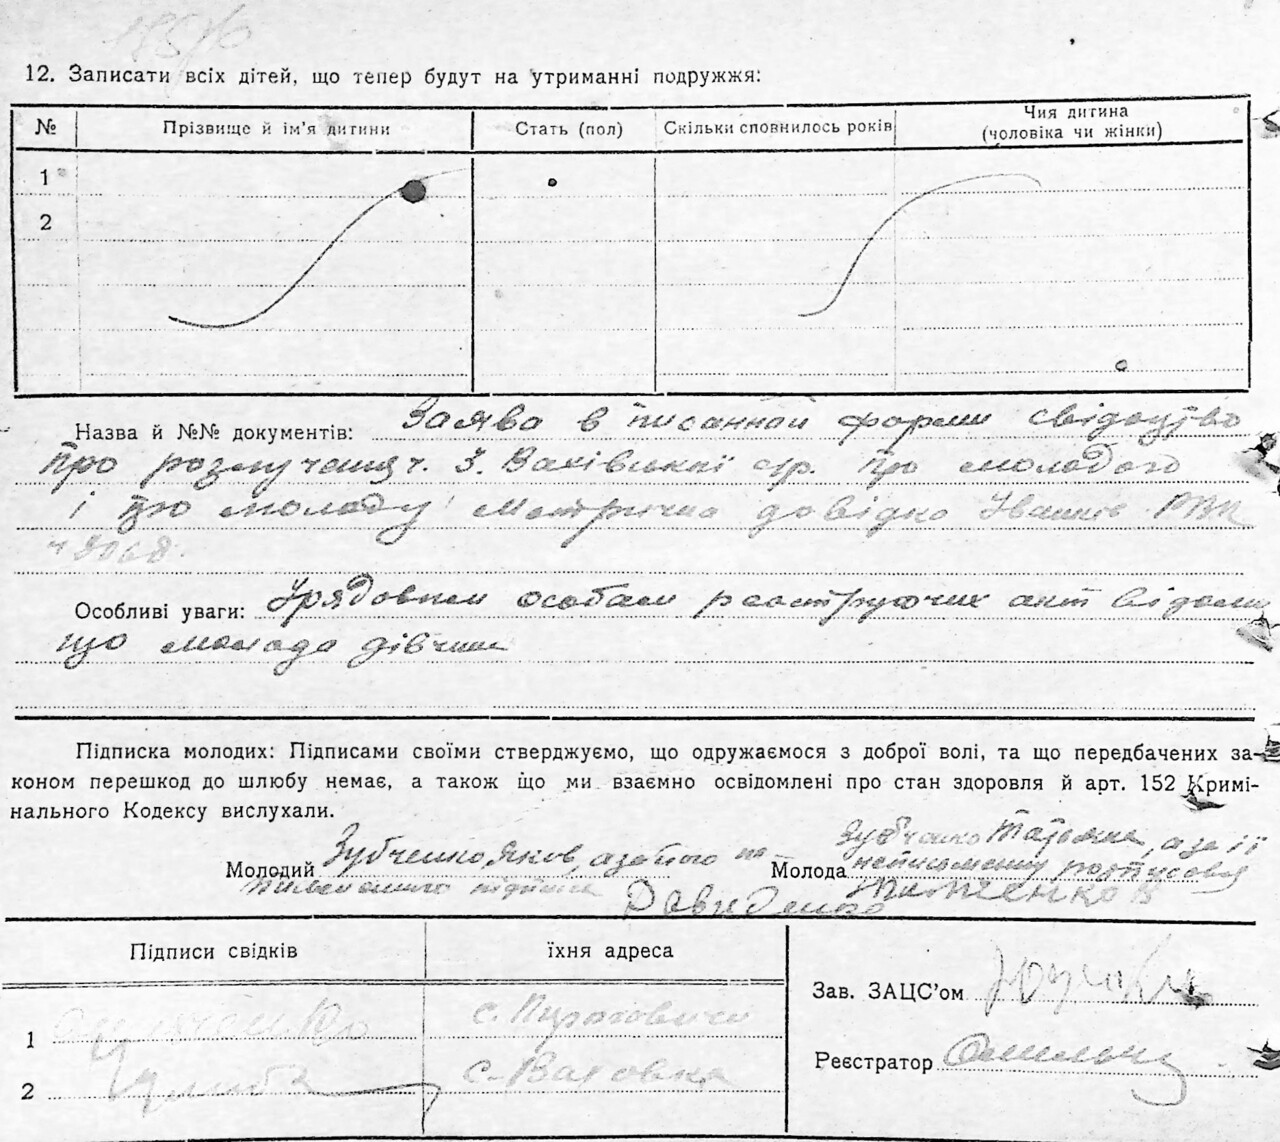 12. Записати всіх дітей, що тепер будут на утриманні подружжя:
№ Прізвище й ім'я дитини Стать (пол) Скільки сповнилось років Чия дитина (чоловіка чи жінки)
1
2
Назва й №№ документів: Заява в писанной форми свідоцтво
про розлучення ч. 3. Вахівської с/р. про молодого
і про молоду метрична довідка РВК
Особливі уваги: Урядовим особам реєструючих акт відомо
що молода дівчина
Підписка молодих: Підписами своїми стверджуємо, що одружаємося з доброї волі, та що передбачених за-
коном перешкод до шлюбу немає, а також що ми взаємно освідомлені про стан здоровля й арт. 152 Кримі-
нального Кодексу вислухали.
Молодий Зубченко Яков, а за його не-
письменного підписа
Давиденко
Молода Зубченко Татьяна, а за її
неписьменну росписався
Підписи свідків їхня адреса
1 с. Пироговичи
2 с. Ваховка
Зав. ЗАЦС'ом
Реєстратор